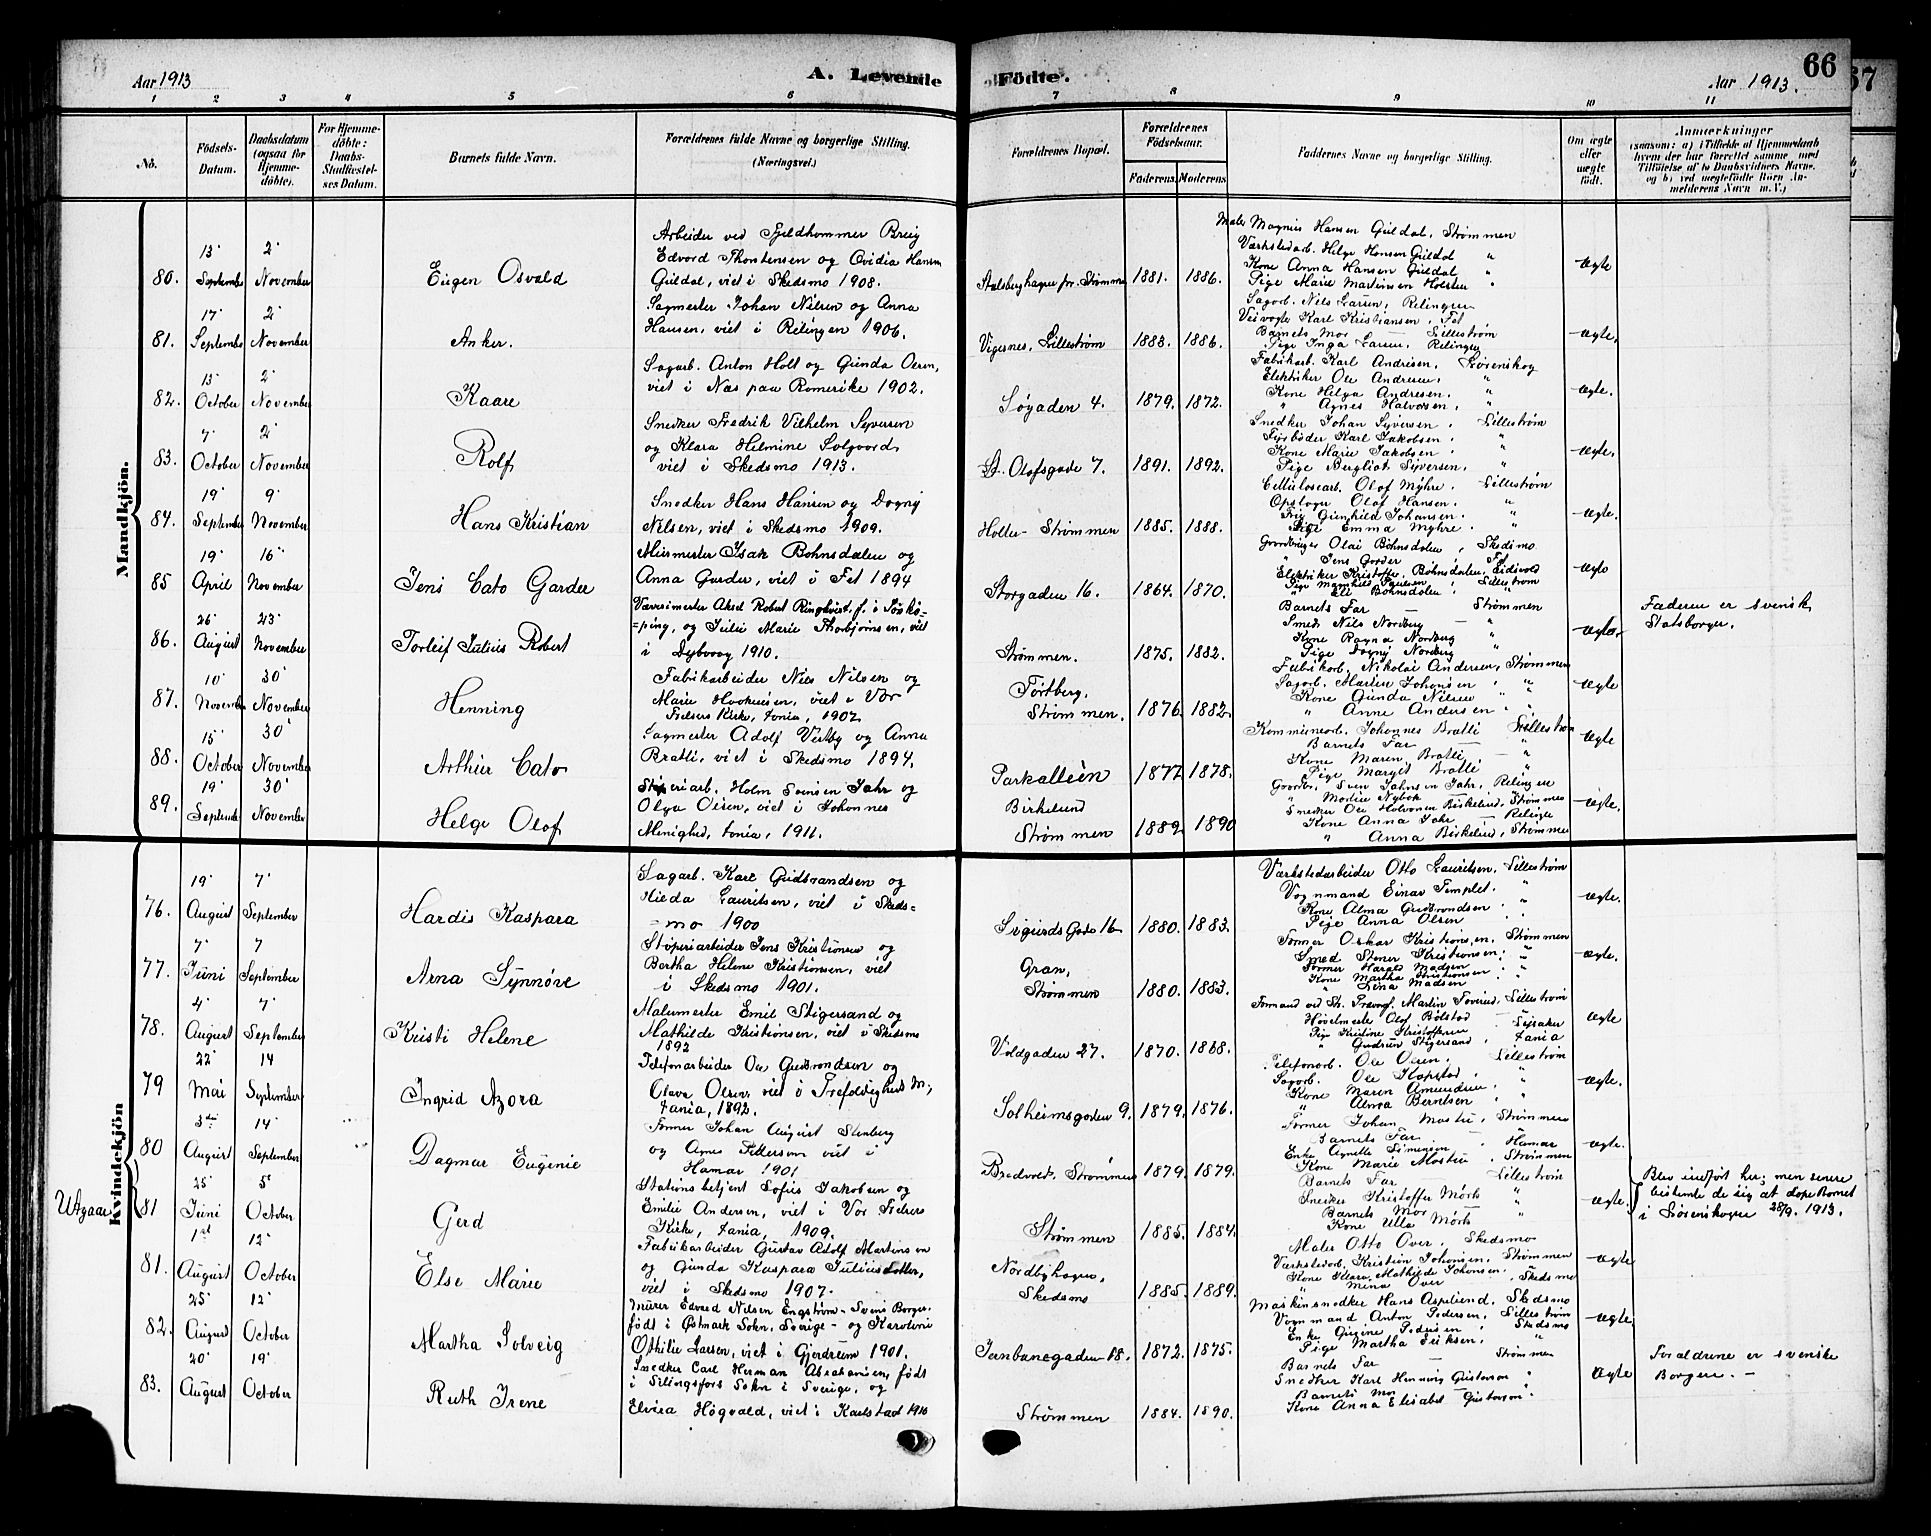 Aar 1913
A. Levende Födte.
Aar 1913.
66
67
1 2 3 4 5 6 7 8 9 10 11
No.
Födsels-
Datum.
Daabsdatum
(ogsaa for
Hjemme-
döbte).
For Hjemme-
döbte:
Daabs-
Stadfæstel-
ses Datum.
Barnets fulde Navn.
Forældrenes fulde Navne og borgerlige Stilling.
(Næringsvei.)
Forældrenes Bopæl.
Forældrenes
Födselsaar.
Faderens. Moderens.
Faddernes Navne og borgerlige Stilling.
Om ægte
eller
uægte
födt.
Anmærkninger
(saasom: a) i Tilfælde af Hjemmedaab
hvem der har forrettet samme, med
Tilföielse af to Daabsvidners Navne,
og b) ved uægtefödte Börn An-
melderens Navn m. V.)
Mandkjön.
80.
13' September
2' November
Eugen Osvald
Arbeider ved
Edvard Thorstensen og Ovidia Hansen
Guldal, viet i Skedsmo 1908.
1881. 1886.
Maler Magnus Hansen Guldal, Strømmen
Værkstedarb. Helge Hansen Guldal "
Kone Anna Hansen Guldal "
Pige Marie Martinsen Holsten "
ægte
81.
17' September
2' November
Anker.
Sagmester Johan Nilsen og Anna
Hansen, viet i Rælingen 1906.
Vigernes, Lillestrøm
1883. 1886.
Sagarb. Nils Larsen, Relingen
Veivogter Karl Kristiansen, Fet
Barnets Mor — Lillestrøm
Pige Inga Larsen, Relingen
ægte.
82.
13' October
2' November
Kaare
Sagarb. Anton Holt og Gunda Olsen,
viet i Næs paa Romerike 1902.
Søgaden 4.
1879. 1872.
Fabrikarb. Karl Andresen, Lørenskog
Elektriker Ole Andresen, "
Kone Helga Andresen, "
" Agnes Halvorsen, "
ægte.
83.
7' October
2' November
Rolf
Snedker Fredrik Vilhelm Syversen
og Klara Helmine Solgaard,
viet i Skedsmo 1913.
St. Olafsgade 7.
1891. 1892.
Snedker Johan Syversen, Lillestrøm
Fyrbøder Karl Jakobsen, "
Kone Marie Jakobsen, "
Pige Bergliot Syversen, "
ægte.
84.
19' September
9' November
Hans Kristian
Snedker Hans Hansen og Dagny
Nilsen, viet i Skedsmo 1909.
Holter - Strømmen
1885. 1888.
Cellulosearb. Olof Myhre, Lillestrøm
Olaf Hansen, "
Gunhild Johansen, "
Pige Emma Myhre, "
ægte.
85
19' April
16' November
Jens Cato Garder
Murmester Isak Bøhnsdalen og
Anna Garder, viet i Fet 1894
Storgaden 16.
1864. 1870.
Gaardbruger Olai Bøhnsdalen, Skedsmo
" Jens Garder, Fet
Elektriker Kristoffer Bøhnsdalen, Eidsvold
Pige Paulsen, Lillestrøm
" Eli Bøhnsdalen, "
ægte
86.
26' August
23' November
Torleif Julius Robert
Aksel Robert Ringkvist, f. i Jönkö=
=ping, og Julie Marie Thorbjørnsen, viet
i Dybvaag 1910.
Strømmen.
1875. 1882.
Barnets Far — Strømmen
Smed Nils Nordberg "
Kone Ragna Nordberg "
Pige Dagny Nordberg "
ægte
Faderen er svensk
Statsborger.
87.
10' November
30' November
Henning
Fabrikarbeider Nils Nilsen og
Marie Haakensen, viet i Vor
Frelsers Kirke, Xania, 1902.
Tørtberg,
Strømmen.
1876. 1882.
Fabrikarb. Nikolai Andersen, Strømmen
Sagarb. Martin Johansen, "
Kone Gunda Nilsen, "
" Anne Andersen, "
ægte
88.
15' October
30' November
Arthur Cato
Sagmester Adolf Vestby og Anna
Bratli, viet i Skedsmo 1894.
Parkalleen
1872 1878.
Kommunearb. Johannes Bratli Lillestrøm
Barnets Far — "
Kone Maren Bratli, "
Pige Margit Bratli "
ægte
89.
19' September
30' November
Helge Olof
Støperiarb. Holm Svensen Jahr og
Olga Olsen, viet i Johannes
Menighed, Xania, 1911.
Birkelund
Strømmen
1889 1890
Gaardbr. Sven Jahnsen Jahr, Relingen
" Martin Nybak "
Snedker Ole Halvorsen Birkelund, Strømmen
Kone Anna Jahr — Relingen
" Anna Birkelund, Strømmen
ægte.
Kvindekjön
76.
19' August
7' September
Hardis Kaspara
Sagarb. Karl Gudbrandsen og
Hilda Lauritsen, viet i Skeds=
=mo 1900
Sigurds Gade 16
1880. 1883.
Værkstedarbeider Otto Lauritsen, Lillestrøm
Vognmand Einar Templet, "
Kone Alma Gudbrandsen, "
Pige Anna Olsen "
ægte.
77.
7' Juni
7 September
Arna Synnøve
Støperiarbeider Jens Kristiansen og
Bertha Helene Kristiansen, viet
i Skedsmo 1901.
Gran,
Strømmen
1880. 1883.
Former Oskar Kristiansen, Strømmen
Smed Stener Kristiansen, "
Former Harald Madsen "
Kone Martha Kristiansen "
" Lina Madsen "
ægte.
78.
4' August
7' September
Kristi Helene
Malermester Emil Stigersand og
Mathilde Kristiansen, viet i Skedsmo
1892
Voldgaden 27.
1870. 1868.
Martin Lillestrøm
Høvelmester Olof Bølstad
Pige Kristine Kristoffersen
" Gudrun Stigersand, Xania
ægte
79
22' Mai
14 September
Ingrid Azora
Telefonarbeider Ole Gudbrandsen og
Olava Olsen, viet i Trefoldigheds M.,
Xania, 1892.
Solheimsgaden 9.
1879. 1876.
Telefonarb. Ole Olsen, Lillestrøm
Sagarb. Ole Hapstad, "
Kone Maren Amundsen, "
" Alma Berntsen "
ægte.
80
3die August
14' September
Dagmar Eugenie
Former Johan August Stenberg
og Agnes Pettersen viet i
Hamar 1901
Bredvold, Strømmen
1879. 1879.
Former Johan Mostu, Strømmen
Barnets Far "
Enke Agnette Simensen, Hamar
Kone Marie Mostu, Strømmen
ægte.
Utgaar
81
25' Juni
5' October
Gerd
Stationsbetjent Sofus Jakobsen og
Emilie Andersen, viet i Vor Frelsers
Kirke, Xania, 1909.
Strømmen
1885. 1884.
Barnets Far — Lillestrøm
Snedker Kristoffer Mørk "
Barnets Mor "
Kone Ulla Mørk "
ægte.
Blev indført her; men senere
bestemte de sig at døpe Barnet
i Lørenskogen 28/9. 1913.
81.
1st August
12' October
Else Marie
Fabrikarbeider Gustav Adolf Martinsen
og Gunda Kaspara Juliusdatter,
viet i Skedsmo 1907.
Nordbyhagen,
Skedsmo
1885. 1889.
Maler Otto Over, Skedsmo
Værkstedarb. Kristian Johansen, Strømmen
Kone Klara Mathilde Johansen, "
" Mina Over, Skedsmo
ægte
82.
25' August
12' October
Martha Solveig
Murer Edvard Nilsen Engstrøm - Svensk Borger,
født i Østmark Sokn, Sverige - og Karoline
Othilie Larsen, viet i Gjerdrum 1901.
Jernbanegaden 18.
1872. 1875.
Maskinsnedker Hans Asplund, Skedsmo
Vognmand Anton Pedersen, Lillestrøm
Enke Pedersen, Skedsmo
Pige Martha Eriksen, "
ægte.
83.
20' August
19' October
Ruth Irene
Snedker Carl Herman Abrahamsen, født
i Silingsfors Sokn i Sverige, og
Elvira Högvald, viet i Karlstad 1910
Strømmen
1884. 1890.
Barnets Far — Strømmen
Snedker Karl Henning Gustavson "
Barnets Mor "
Kone Anna Elisabet Gustavson "
ægte
Forældrene er svenske
Borgere. —